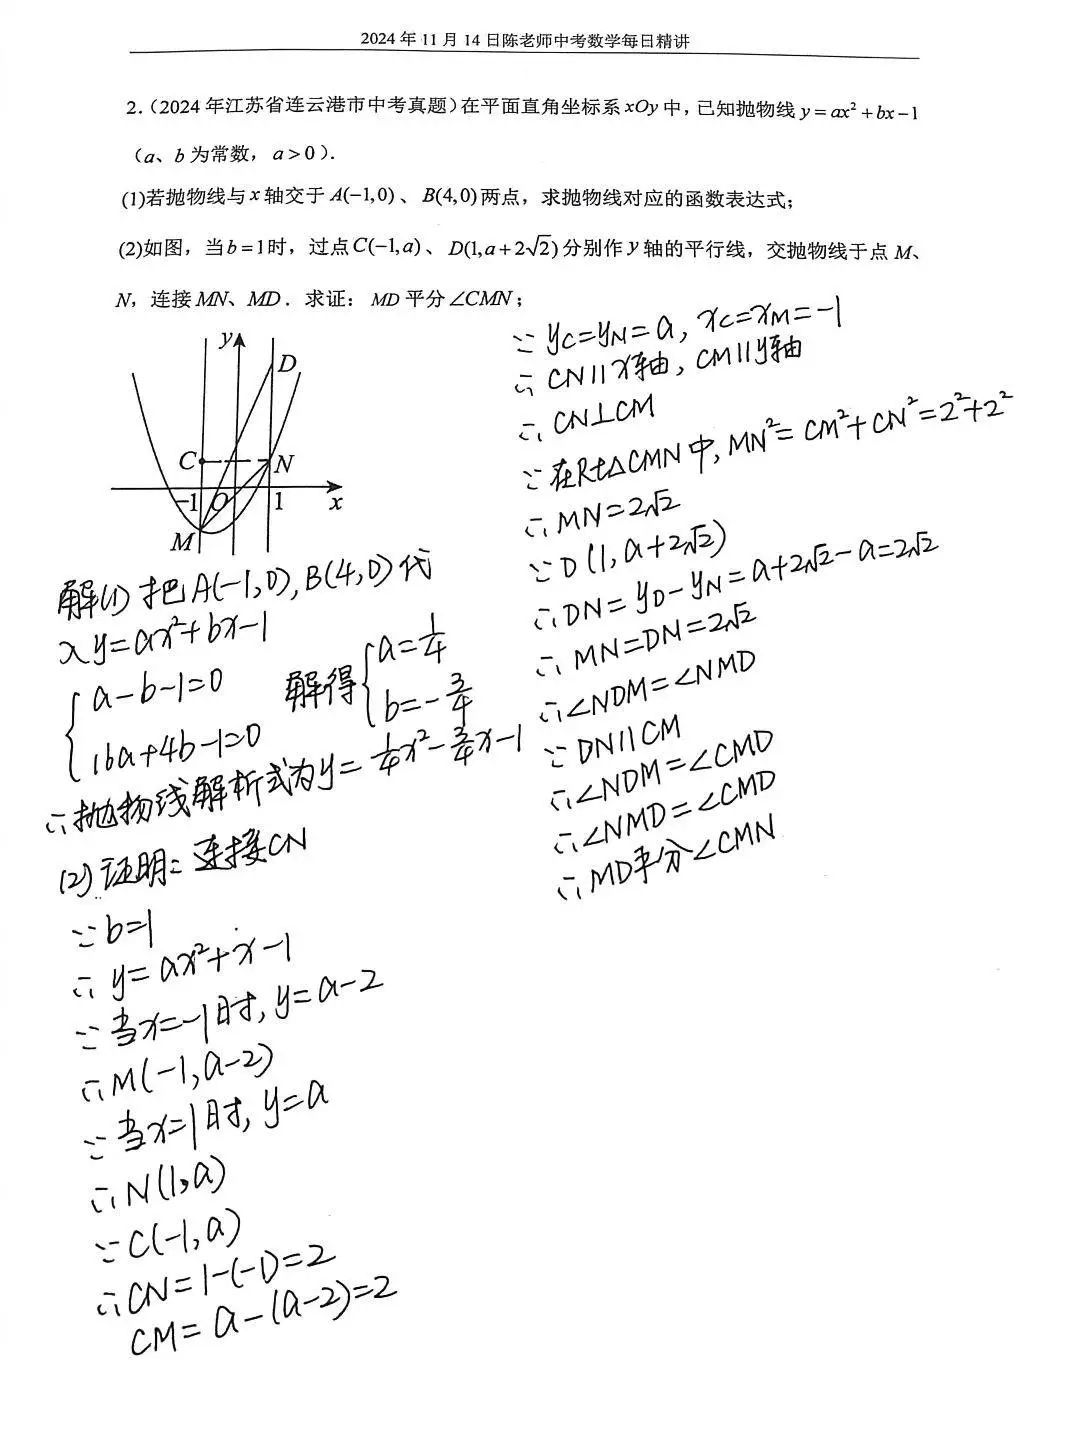 2024年11月14日陈老师中考数学每日精讲
2.(2024年江苏省连云港市中考真题)在平面直角坐标系xOy中,已知抛物线y=ax²+bx-1
(a、b为常数,a>0).
(1)若抛物线与x轴交于A(-1,0)、B(4,0)两点,求抛物线对应的函数表达式;
(2)如图,当b=1时,过点C(-1,a)、D(1,a+2√2)分别作y轴的平行线,交抛物线于点M、
N,连接MN、MD.求证:MD平分∠CMN;
y
D
C
N
-1
O
1
x
M
解(1)把A(-1,0),B(4,0)代
入y=ax²+bx-1
{a-b-1=0
16a+4b-1=0
解得{a=1/4
b=-3/4
∴抛物线解析式为y=1/4x²-3/4x-1
(2)证明:连接CN
∵b=1
∴y=ax²+x-1
∵当x=-1时,y=a-2
∴M(-1,a-2)
∵当x=1时,y=a
∴N(1,a)
∵C(-1,a)
∴CN=1-(-1)=2
CM=a-(a-2)=2
∵yC=yN=a,xC=xM=-1
∴CN∥x轴,CM∥y轴
∴CN⊥CM
∵在Rt△CMN中,MN²=CM²+CN²=2²+2²
∴MN=2√2
∵D(1,a+2√2)
∴DN=yD-yN=a+2√2-a=2√2
∴MN=DN=2√2
∴∠NDM=∠NMD
∵DN∥CM
∴∠NDM=∠CMD
∴∠NMD=∠CMD
∴MD平分∠CMN